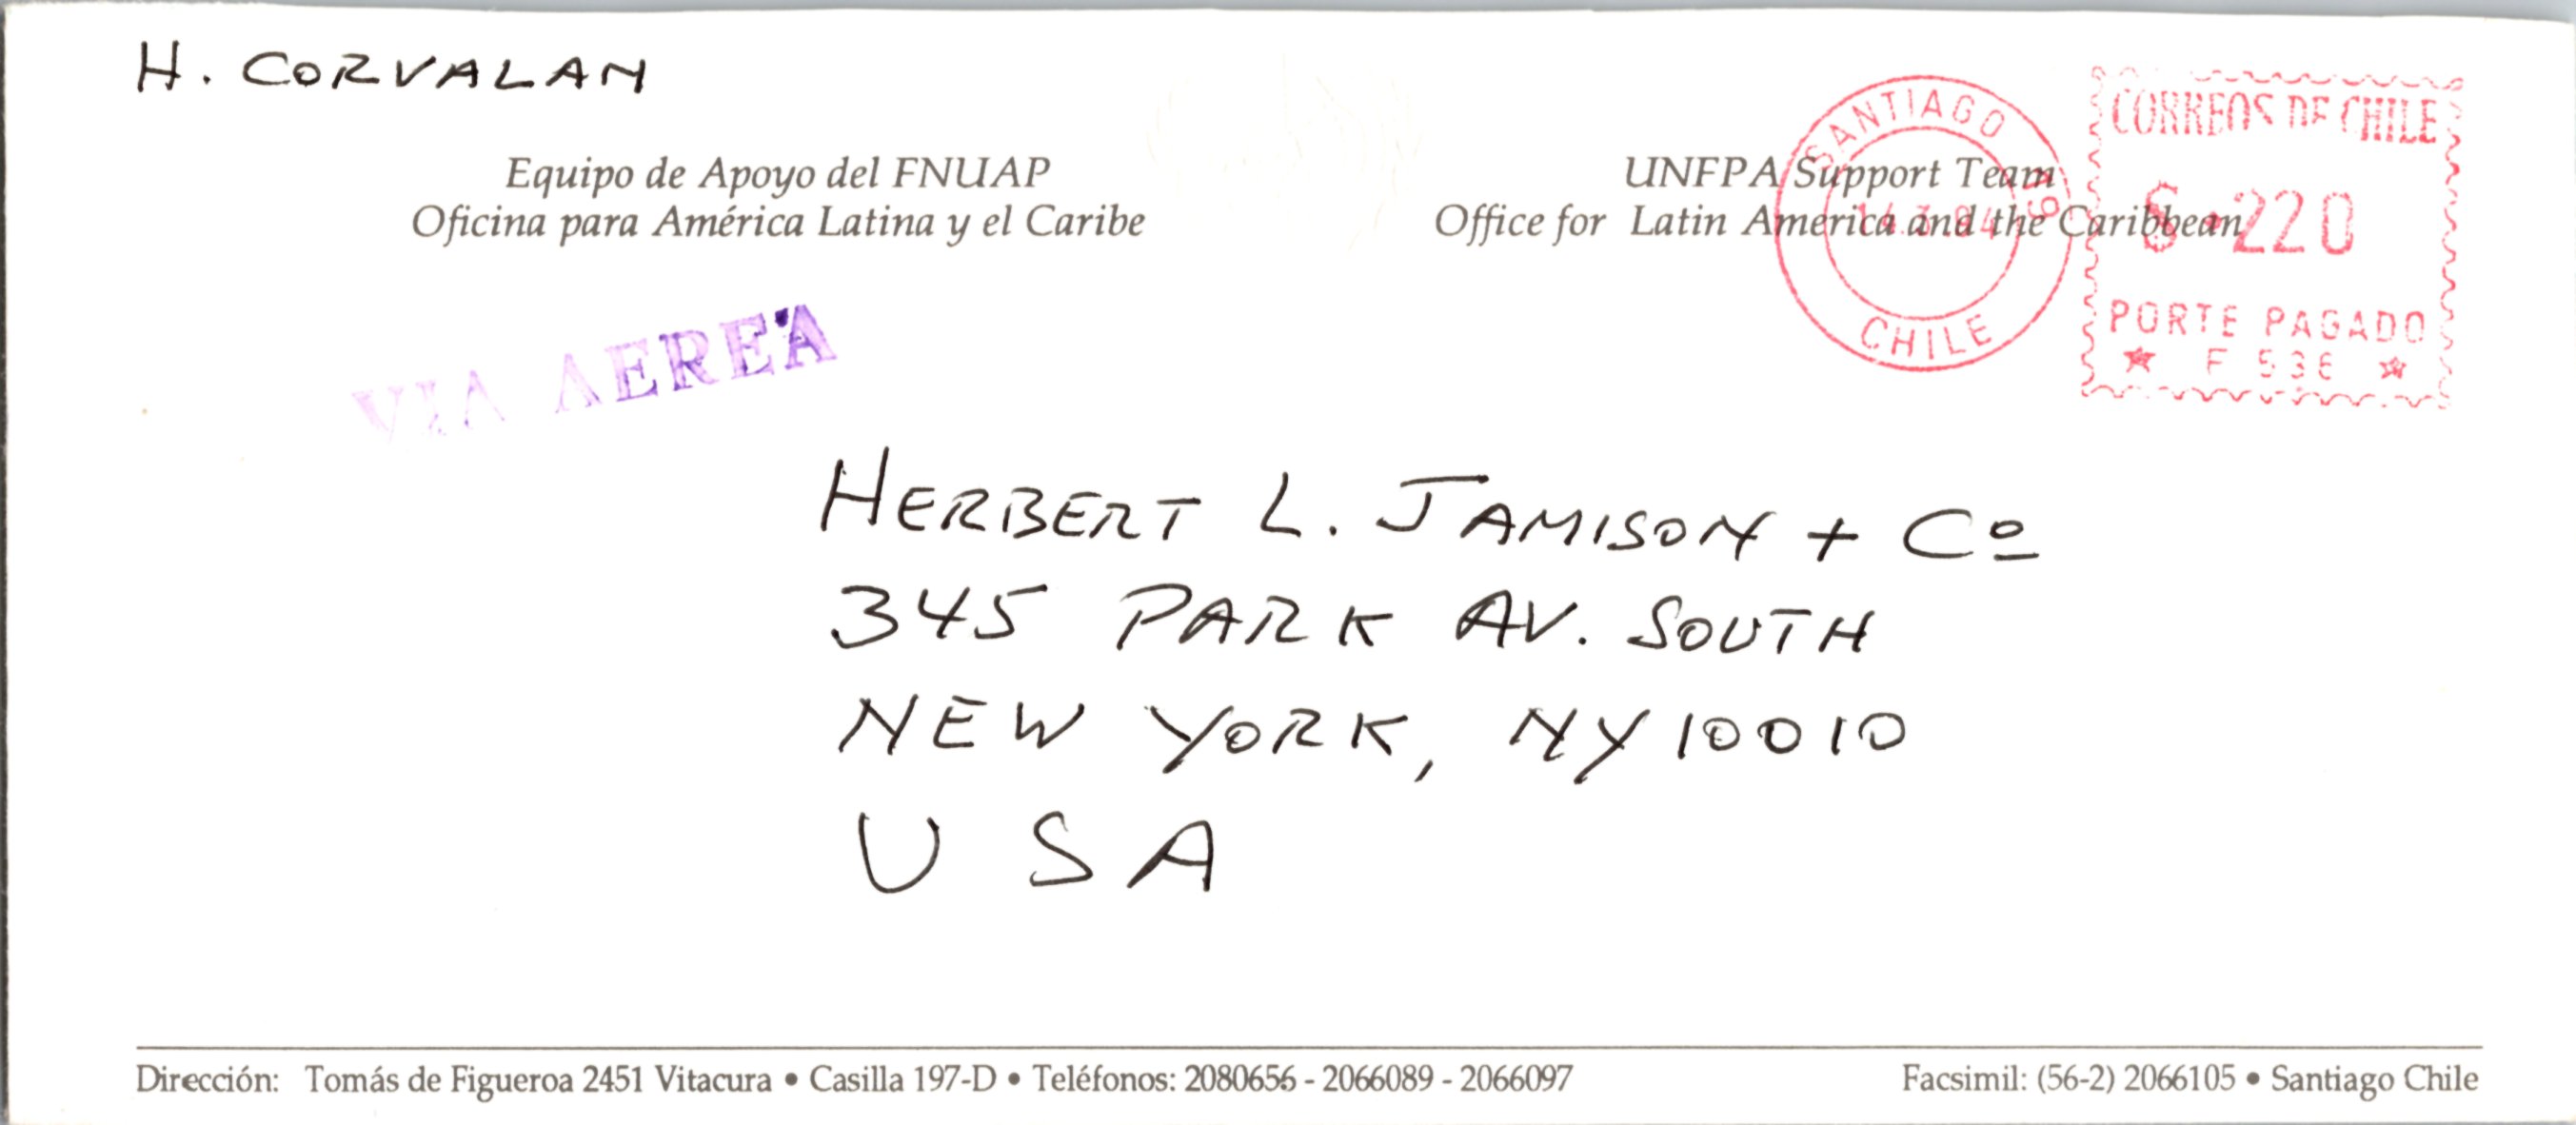 H. CORVALAN
Equipo de Apoyo del FNUAP
Oficina para América Latina y el Caribe
UNFPA Support Team
Office for Latin America and the Caribbean
SANTIAGO
19
14.3.94
CHILE
CORREOS DE CHILE
$ 220
PORTE PAGADO
VIA AEREA
HERBERT L. JAMISON + Cº
345 PARK AV. SOUTH
NEW YORK, NY 10010
U S A
Dirección: Tomás de Figueroa 2451 Vitacura • Casilla 197-D • Teléfonos: 2080656 - 2066089 - 2066097
Facsimil: (56-2) 2066105 • Santiago Chile